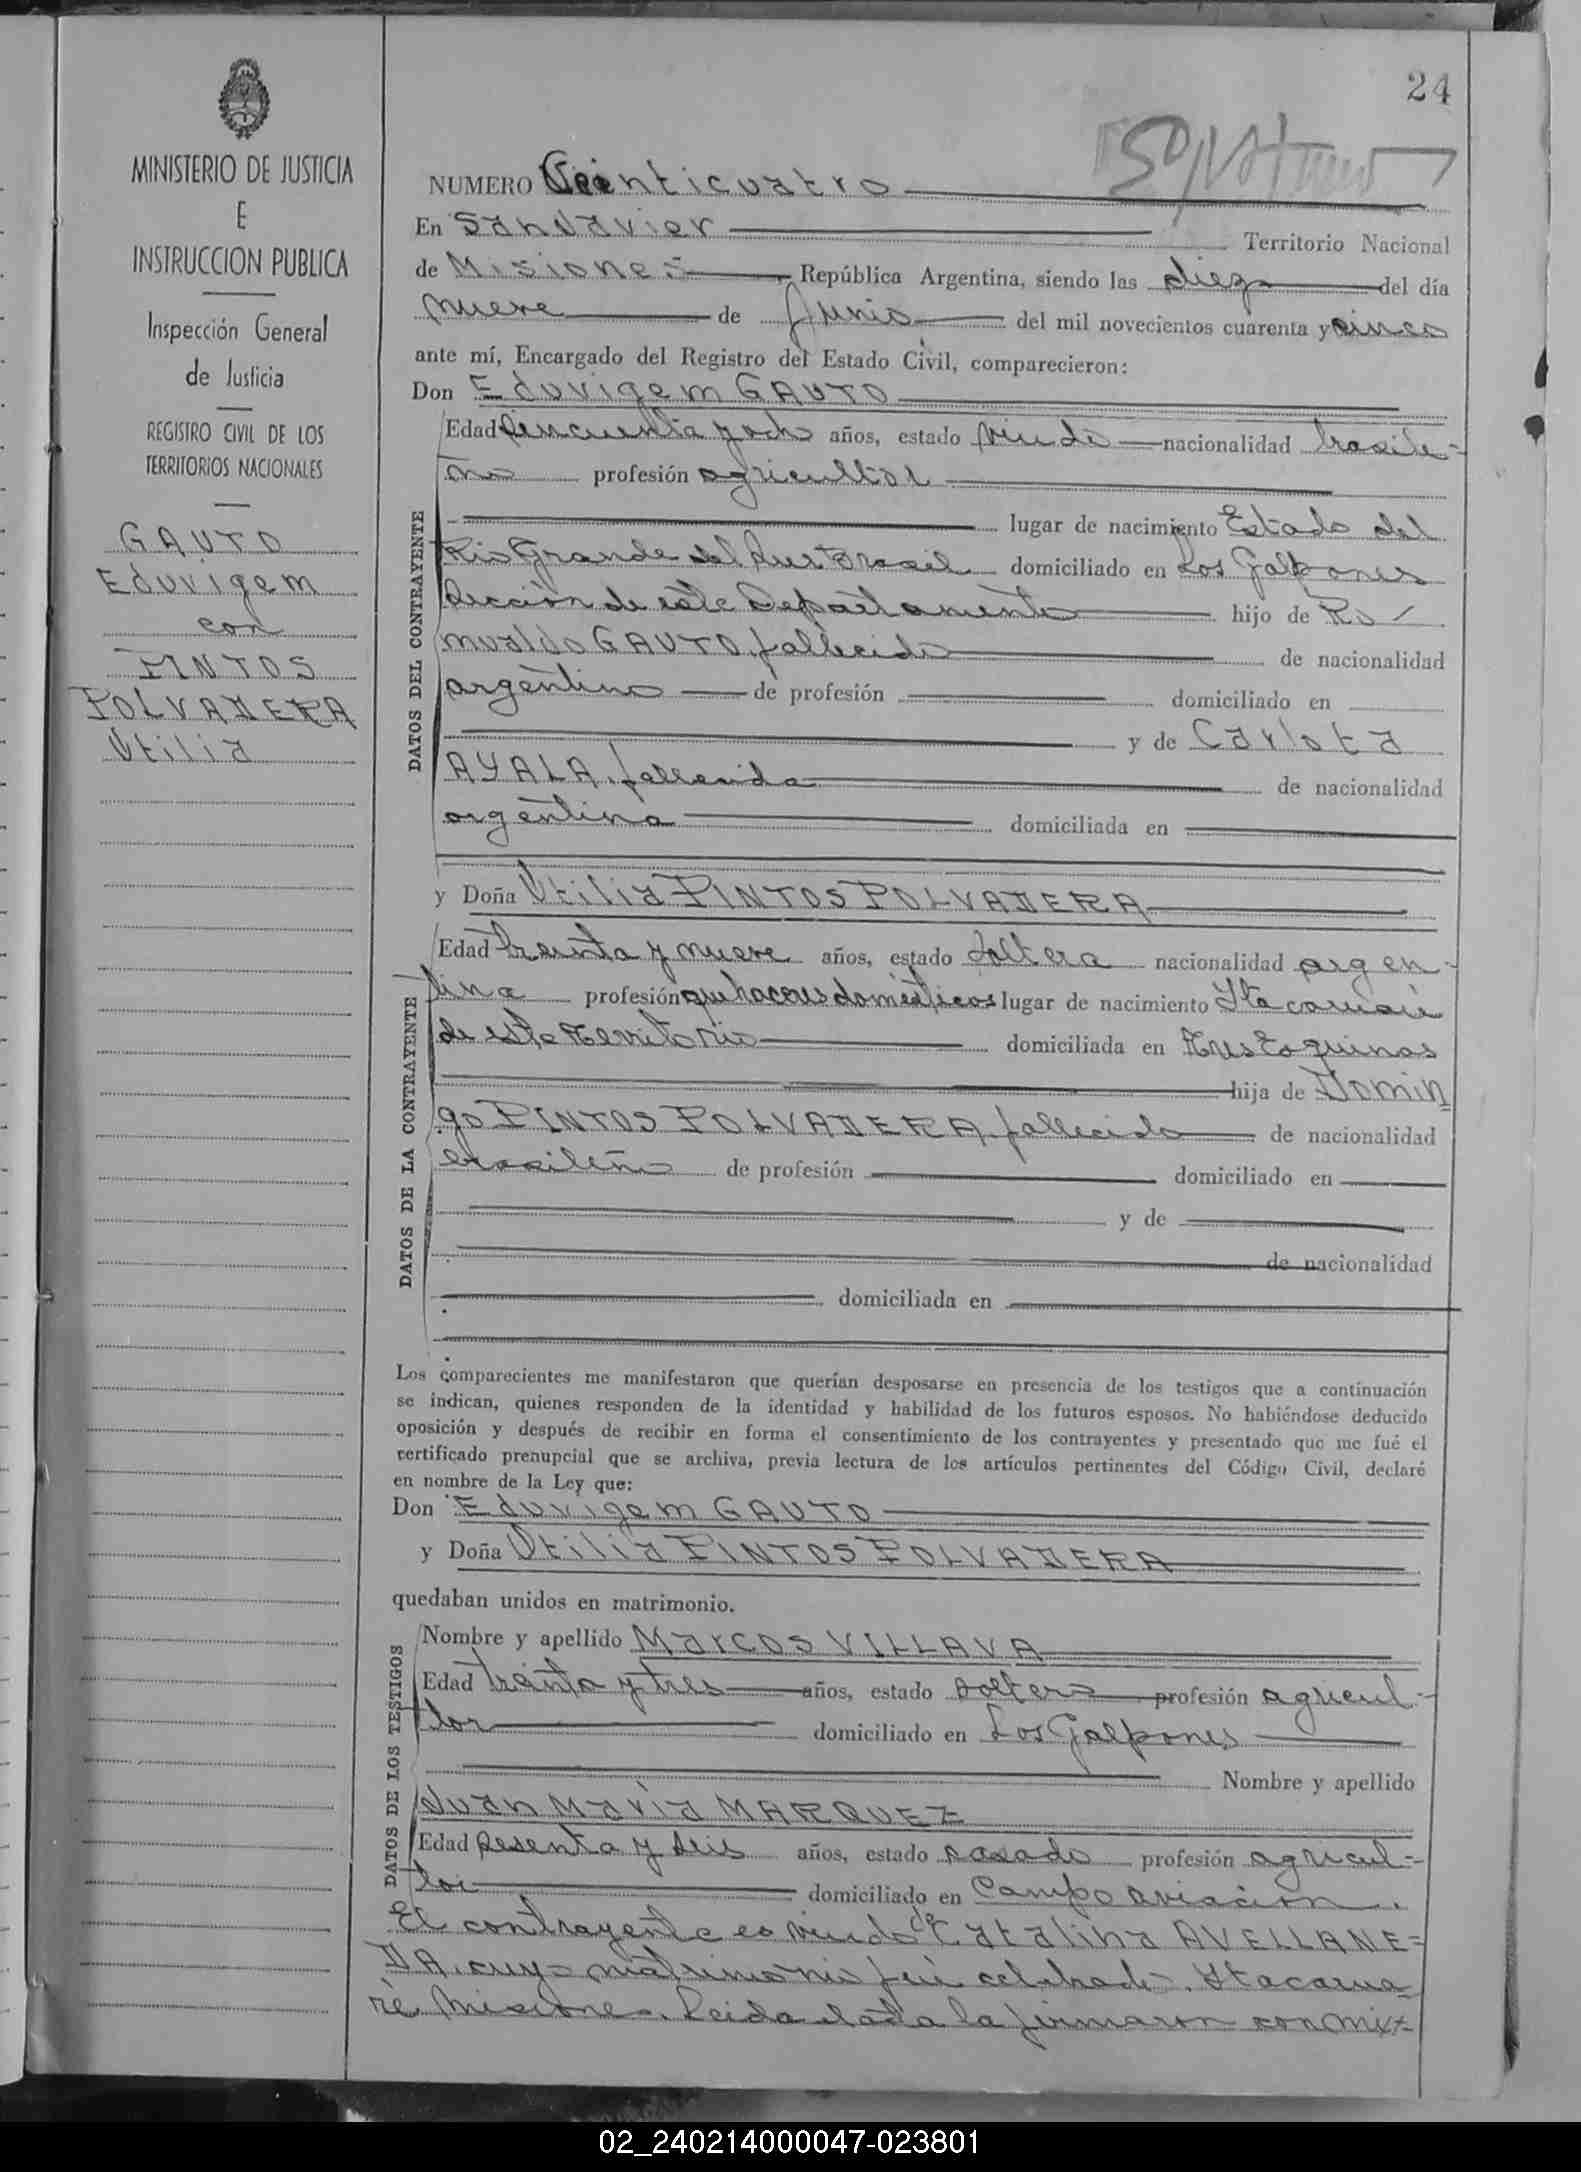 24
MINISTERIO DE JUSTICIA
E
INSTRUCCION PUBLICA
Inspección General
de Justicia
REGISTRO CIVIL DE LOS
TERRITORIOS NACIONALES
GAUTO
Eduvigem
con
PINTOS
POLVADERA
Utilia
NUMERO Veinticuatro
En San Javier Territorio Nacional
de Misiones República Argentina, siendo las diez del día
nueve de Junio del mil novecientos cuarenta y cinco
ante mí, Encargado del Registro del Estado Civil, comparecieron:
Don Eduvigem GAUTO
DATOS DEL CONTRAYENTE
Edad cincuenta y ocho años, estado viudo nacionalidad brasile-
ño profesión agricultor
lugar de nacimiento Estado del
Rio Grande del Sur Brasil domiciliado en Los Galpones
Sección de este Departamento hijo de Ro
mualdo GAUTO, fallecido de nacionalidad
argentino de profesión domiciliado en
y de Carlota
AYALA, fallecida de nacionalidad
argentina domiciliada en
y Doña Utilia PINTOS POLVADERA
DATOS DE LA CONTRAYENTE
Edad treinta y nueve años, estado soltera nacionalidad argen-
tina profesión quehaceres domésticos lugar de nacimiento Itacaruaré
de este Territorio domiciliada en Tres Esquinas
hija de Domin
go PINTOS POLVADERA, fallecido de nacionalidad
brasileño de profesión domiciliado en
y de
de nacionalidad
domiciliada en
Los comparecientes me manifestaron que querían desposarse en presencia de los testigos que a continuación
se indican, quienes responden de la identidad y habilidad de los futuros esposos. No habiéndose deducido
oposición y después de recibir en forma el consentimiento de los contrayentes y presentado que me fué el
certificado prenupcial que se archiva, previa lectura de los artículos pertinentes del Código Civil, declaré
en nombre de la Ley que:
Don Eduvigem GAUTO
y Doña Utilia PINTOS POLVADERA
quedaban unidos en matrimonio.
DATOS DE LOS TESTIGOS
Nombre y apellido Marcos VILLAVA
Edad treinta y tres años, estado soltero profesión agricul-
tor domiciliado en Los Galpones
Nombre y apellido
Juan María MARQUEZ
Edad sesenta y seis años, estado casado profesión agricul-
tor domiciliado en Campo aviación.
El contrayente es viudo de Catalina AVELLANE=
DA, cuyo matrimonio fué celebrado. Itacarua
ré Misiones. Leida el acta la firmaron conmi
02_240214000047-023801